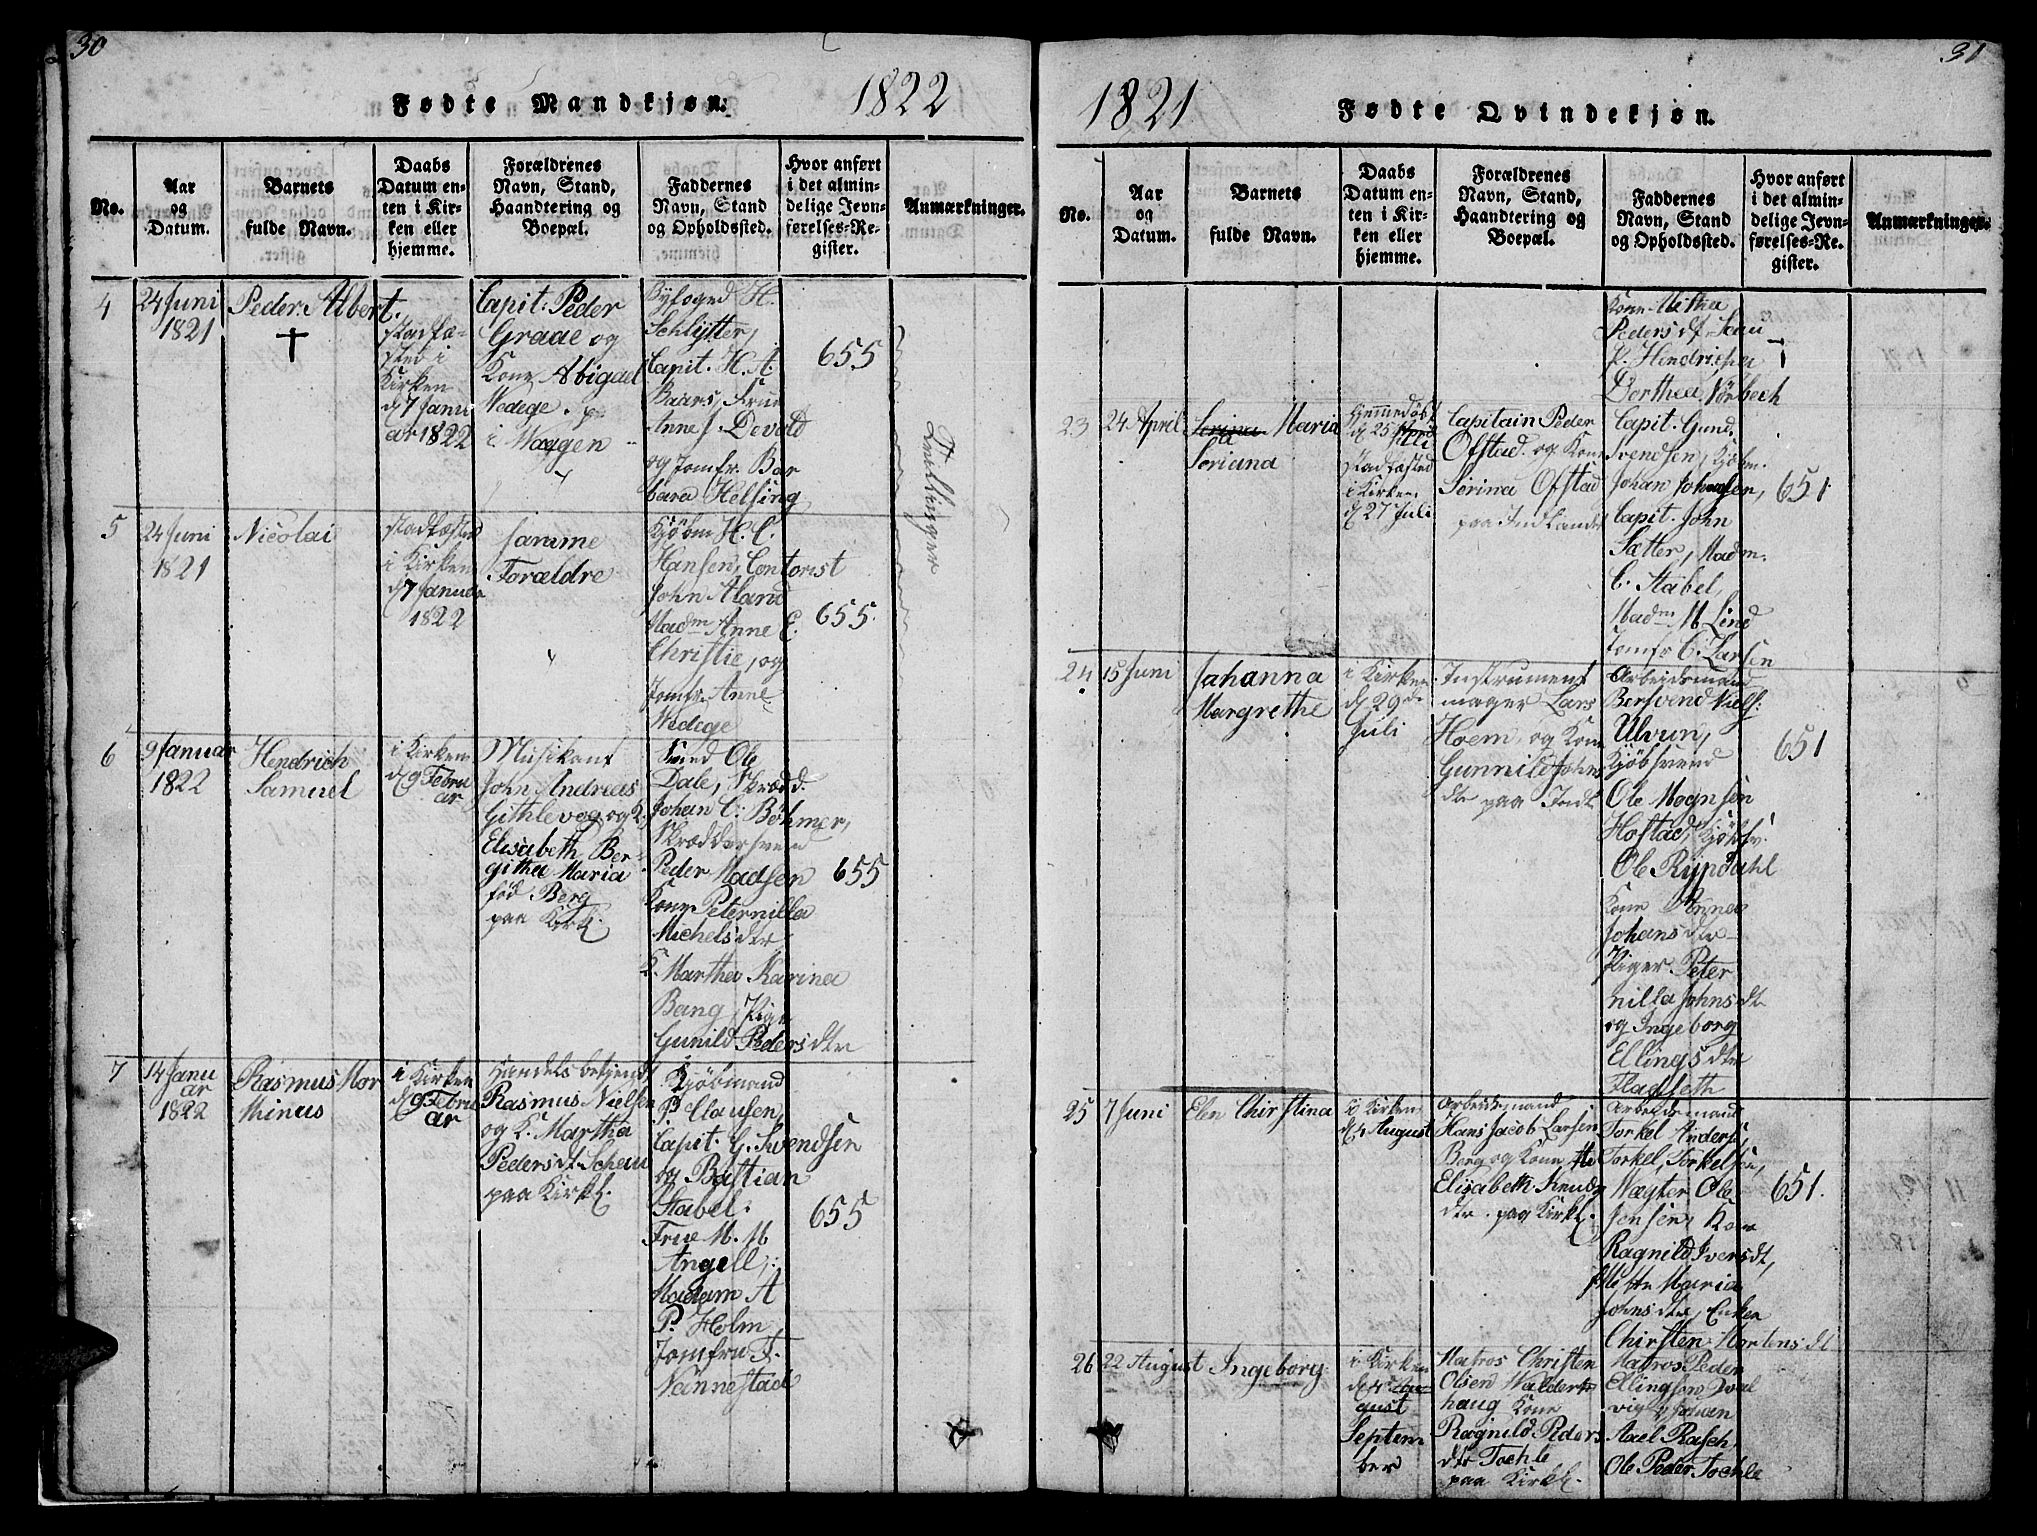 30
Fødte Mandkjøn.
1822
No.
Aar
og
Datum.
Barnets
fulde Navn.
Daabs
Datum en-
ten i Kir-
ken eller
hjemme.
Forældrenes
Navn, Stand,
Haandtering og
Boepæl.
Faddernes
Navn, Stand
og Opholdssted.
Hvor anført
i det almin-
delige Jevn-
førelses-Re-
gister.
Anmærkninger.
4
24 Juni
1821
Peder Albert.
†
stadfæ-
sted i
Kirken
d 7 Janu
ar 1822
Capit: Peder
Graae og
Kone Abigael
Wedege.
i Waagen
Byfoged H.
Schlytter,
Capit. H. A.
Baars, Frue
Anne J. Devold
og Jomfr. Bar
bara Helsing
655
Tvillinger
5
24 Juni
1821
Nicolai
stadfæsted
i Kirken
d 7 Januar
1822
samme
Forældre
Kjøbm H. C.
Hansen, Contorist
John Aland
Madm Anne C.
Christie, og
Jomfr. Anne
Wedege
655.
6
9 Januar
1822
Hendrich
Samuel
i Kirken
d 9 Febru
ar
Musikant
John Andreas
Githlevog og K.
Elisabeth Ber-
githa Maria
fød Berg
paa Kirkl.
Svend Ole
Dale, Skrædd.
Johan C. Böhmer,
Skræddersvend
Peder Madsen
Kone Peternilla
Michelsdtr
K. Martha Karina
Bang, Pige
Gunild Pedersdtr
655
7
14 Janu
ar
1822
Rasmus Mor
thinus
i Kirken
d 9 Febru
ar
Handelsbetjent
Rasmus Nielsen
og K. Martha
Pedersdt. Schau
paa Kirkl.
Kjøbmand
P. Clausen,
Capit. G. Svendsen
og Bastian
Stabel.
Frue M. M
Angell,
Madam A
P. Holm
Jomfru F.
Nannestad
655
31
1821
Fødte Qvindekjøn.
No.
Aar
og
Datum.
Barnets
fulde Navn.
Daabs
Datum en-
ten i Kir-
ken eller
hjemme.
Forældrenes
Navn, Stand,
Haandtering og
Boepæl.
Faddernes
Navn, Stand
og Opholdssted.
Hvor anført
i det almin-
delige Jevn-
førelses-Re-
gister.
Anmærkninger.
Kone
Pedersdt. Schau
P. Hendrichsen
Dorthea Nörbech
23
24 April
Serina Maria
Seriana
Hjemmedöbt
d 25
stadfæsted
i Kirken
d 27 Juli
Capitain Peder
Ofstad og Kone
Serina Ofstad
paa Indlandet
Capit. Gund.
Svendsen, Kjøbm.
Johan Johnsen,
Capit. John
Sætter, Madm.
C. Stabel,
Madm M Lind
Jomfr C. Larsen
651
24
15 Juni
Johanna
Margrethe
i Kirken
d 29 de
Juli
Instrument
mager Lars
Hoem, og Kone
Gunnild Johns
dtr paa Indl.
Arbeidsmand
Bersvend Niels:
Ulvun,
Kjöbsvend
Ole Mognsen
Hostad, Kjöbsv.
Ole Rypdahl
Kone Anne
Johansdtr
Piger Peter
nilla Johnsdtr
og Ingeborg
Ellingsdtr
Fladseth
651
25
7 Juni
Elen Chirstina
i Kirken
d 4 August
Arbeidsmand
Hans Jacob Larsen
Berg og Kone
Elisabeth Knuds
dtr. paa Kirkl.
Arbeidsmand
Torkel Anders
Torkel Torkelsen,
Wægter Ole
Jensen, Kone
Ragnild Iversdt,
Maria
Johnsdtr, Enken
Chirsten Mortensdt
651.
26
22 August
Ingeborg
i Kirken
gust
Septem
ber
Matros Christen
Olsen Walder
haug Kone
Ragnild Peders
dtr Tochle
paa Kirkl.
Matros Peder
Ellingsen
Axel Rasch,
Ole Peder Tochle